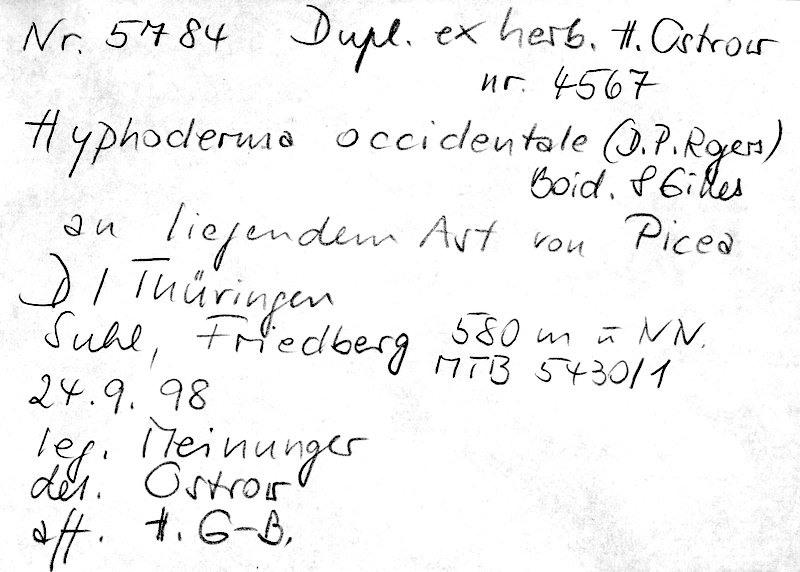 Nr. 5784 Dupl. ex herb. H. Ostrow
nr. 4567
Hyphoderma occidentale (D.P. Rogers)
Boid. & Gilles
an liegendem Ast von Picea
D / Thüringen
Suhl, Friedberg 580 m ü NN.
MTB 5430/1
24.9.98
leg. Meinunger
det. Ostrow
aff. H. G-B.